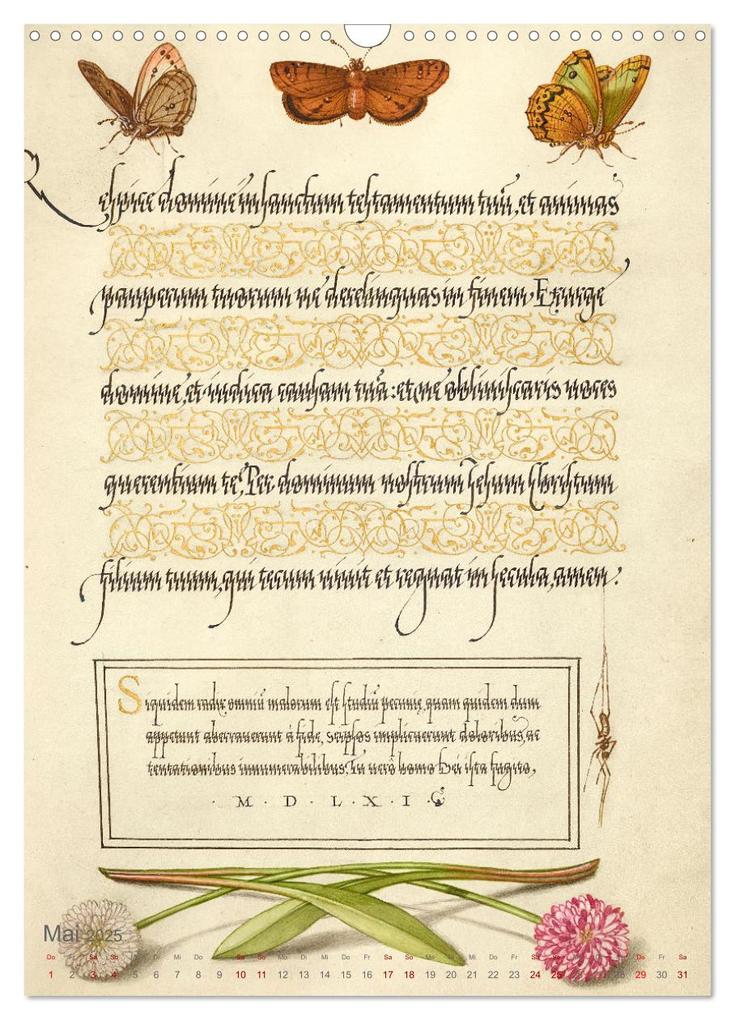 Respice domine in sanctum testamentum tuū, et animas
pauperum tuorum ne derelinquas in finem. Exurge
domine, et iudica causam tuā: et ne obliuiscaris uoces
querentium te. Per dominum nostrum Jesum Christum
filium tuum, qui tecum uiuit et regnat in secula, amen.
Siquidem radix omniū malorum est studiū pecunie, quam quidem dum
appetunt aberrauerunt à fide, seipsos implicuerunt doloribus, ac
tentationibus innumerabilibus, Tu uerò homo Dei ista fugito,
· M · D · L · X · I ·
Mai 2025
Do Fr Sa So Mo Di Mi Do Fr Sa So Mo Di Mi Do Fr Sa So Mo Di Mi Do Fr Sa So Mo Di Mi Do Fr Sa
1 2 3 4 5 6 7 8 9 10 11 12 13 14 15 16 17 18 19 20 21 22 23 24 25 26 27 28 29 30 31